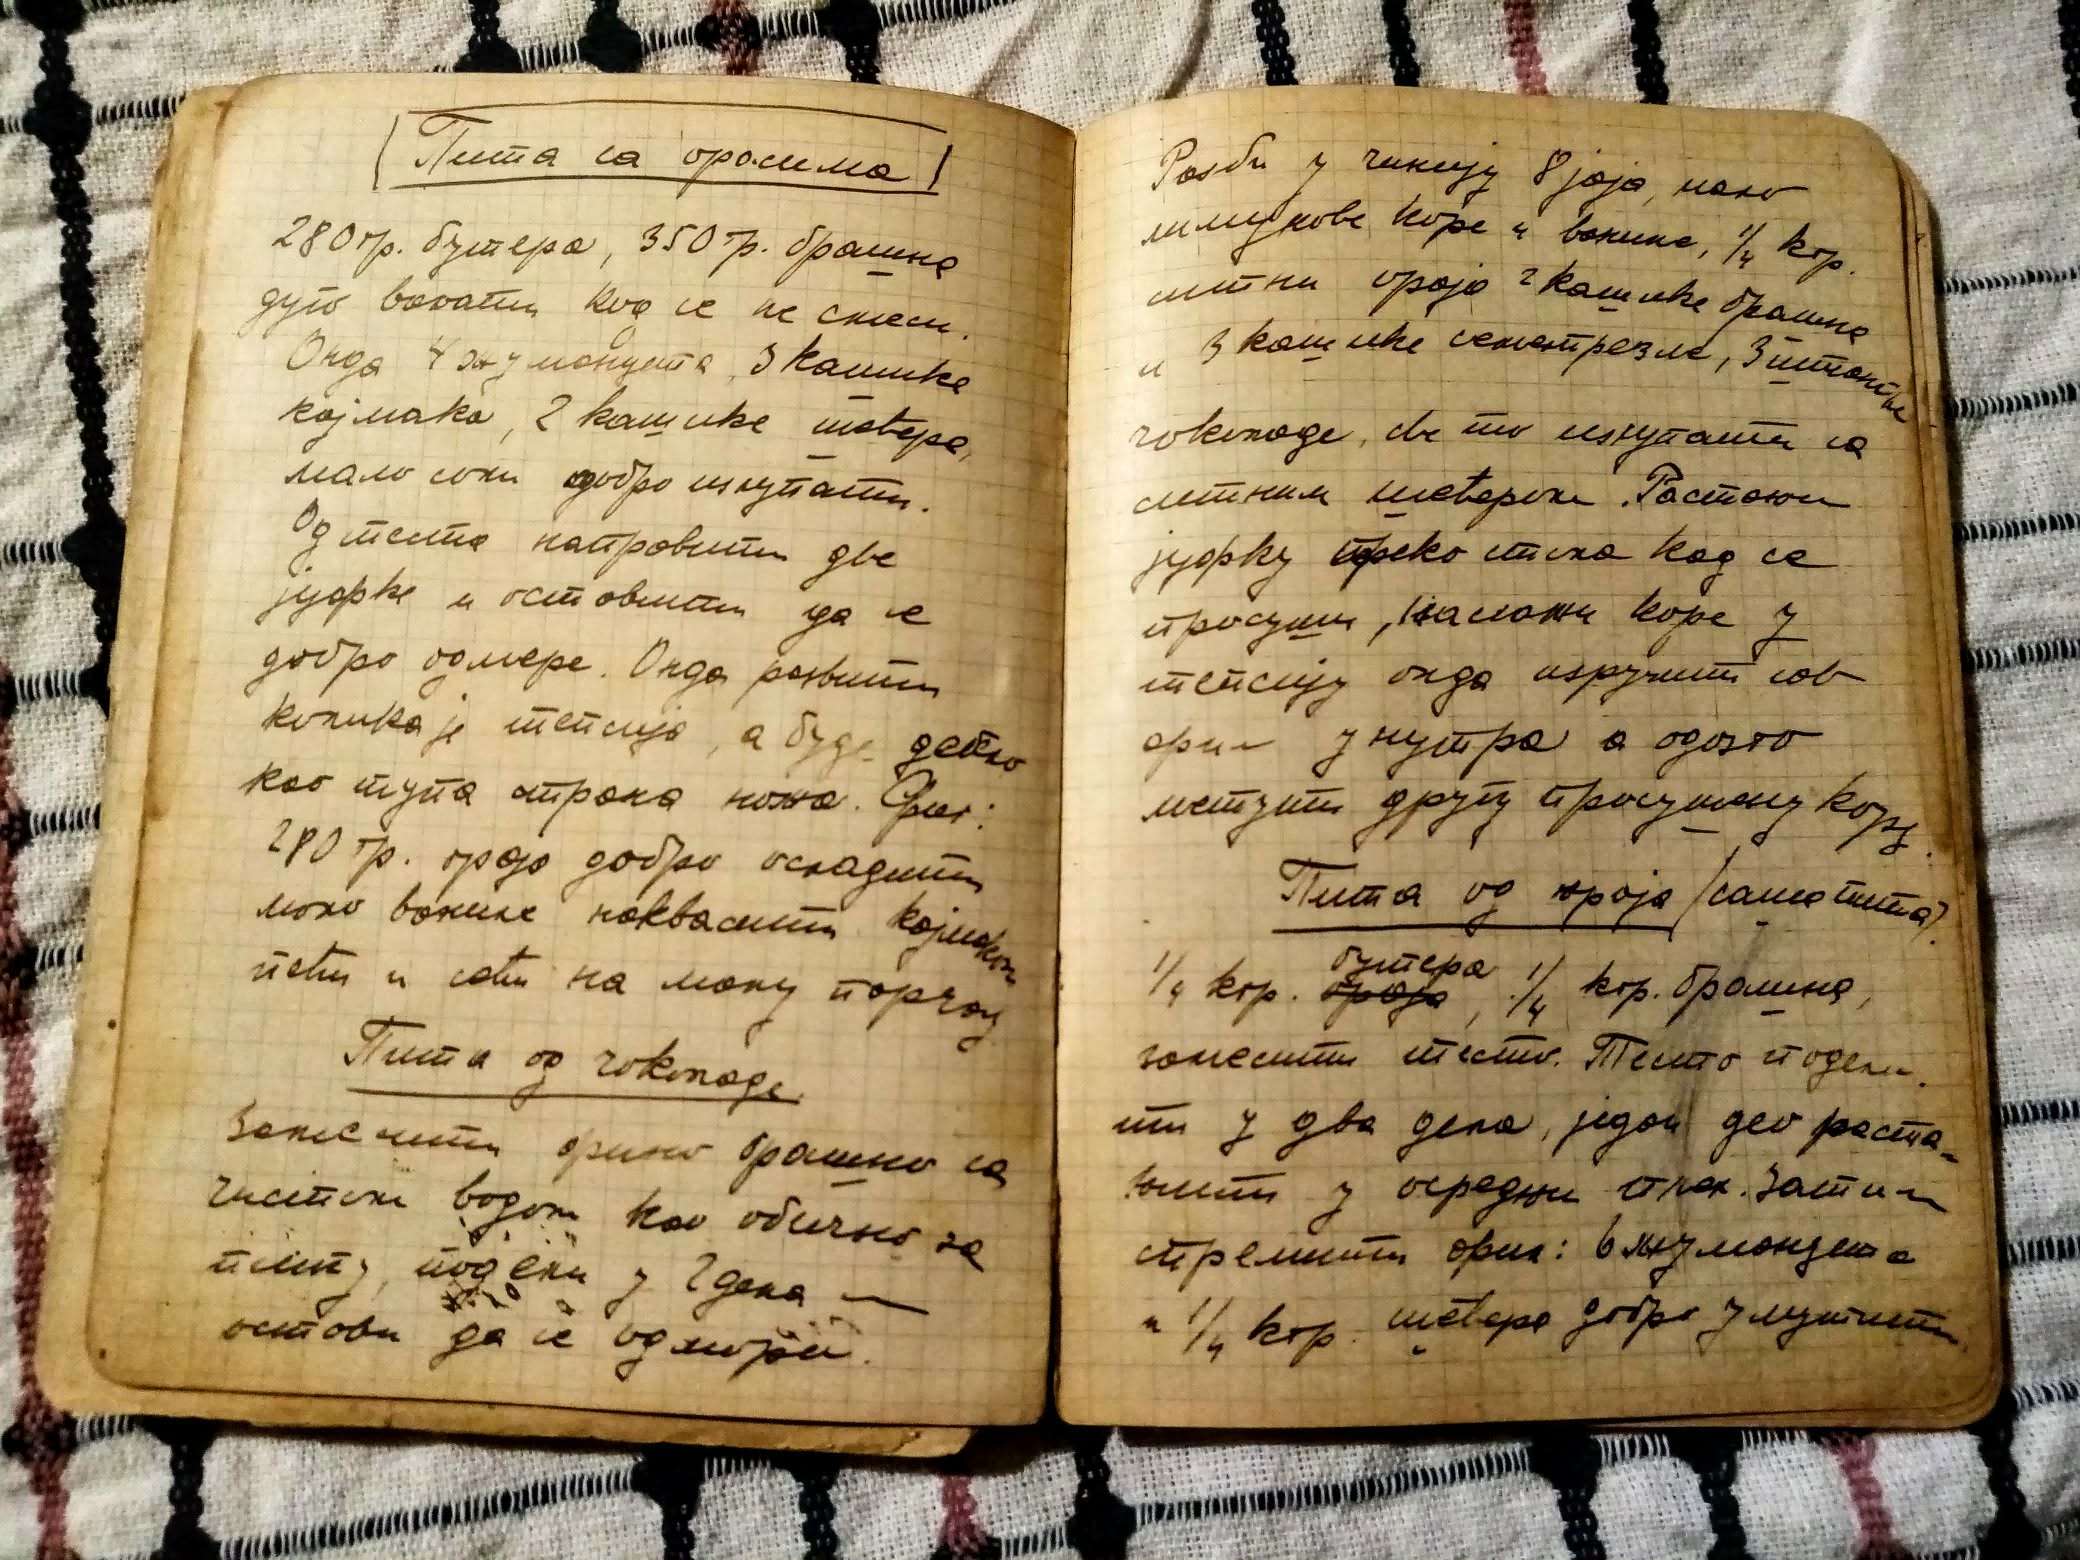 Пита са орасима
280 гр. бутера, 350 гр. брашна
дуго ваљати код се не смеси.
Онда 4 жуманцета, 3 кашике
кајмака, 2 кашике шећера,
мало соли добро излупати.
Од теста направити две
јуфке и оставити да се
добро одмере. Онда развити
колика је тепсија, а буде дебло
као тупа страна ножа. Фил:
280 гр. ораја добро осладити
мало ваниле наквасити кајмаком
пећи и сећи на малу парчад
Пита од чоколаде
Замесити фино брашно са
чистом водом као обично за
питу, подели у 2 дела —
остави да се одмори.
Разби у чинију 8 јаја, мало
лимунове коре и ваниле, 1/4 кгр.
ситни ораја 2 кашике брашна
и 3 кашике семептрезле, 3 штангле
чоколаде, све то излупати са
ситним шећером. Растањи
јуфку преко стола кад се
просуши, насложи коре у
тепсију онда изручити сав
фил унутра а одозго
метути другу просушену кору.
Пита од ораја (сашта пита)
1/4 кгр. бутера, 1/4 кгр. брашна,
замесити тесто. Тесто подели
ти у два дела, један део раста-
њити у осредњи плех. Затим
стремити фил: 6 жуманцета
и 1/4 кгр. шећера добро улупати